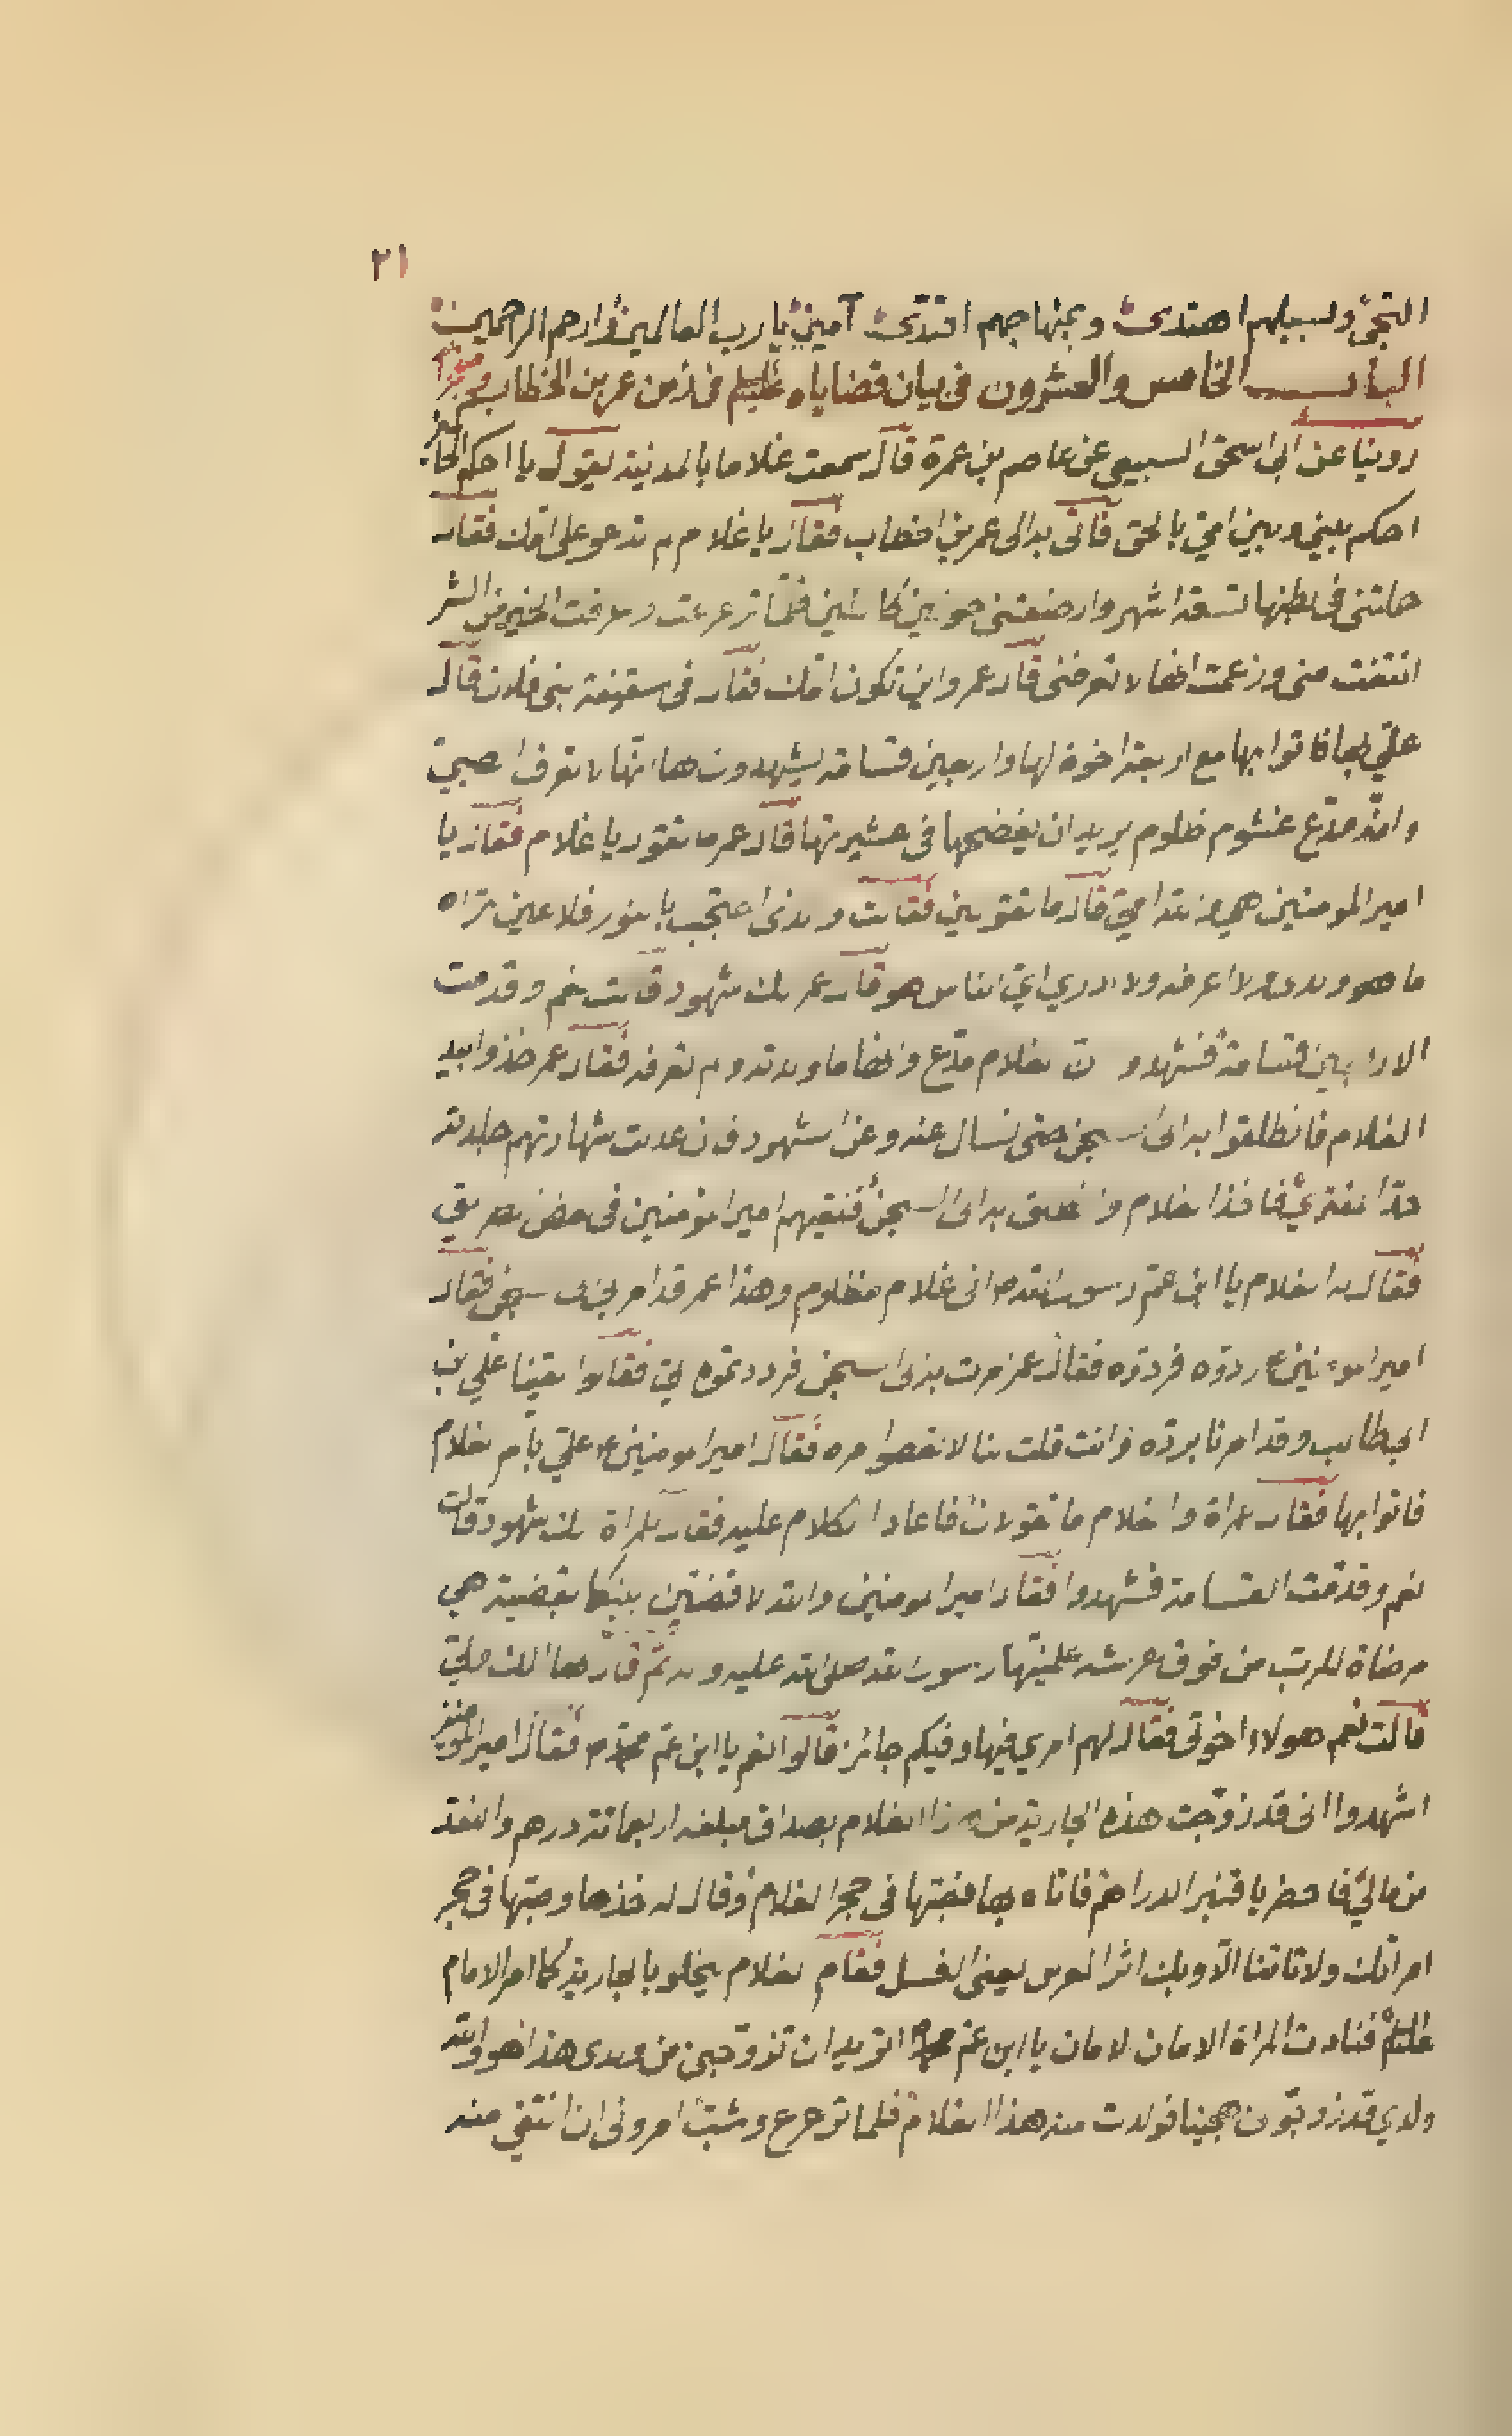 ٢١
التجئ ولسبيلهم اهتدى وبمنهاجهم اقتدى آمين يا رب العالمين وارحم الراحمين
الباب الخامس والعشرون في بيان قضاياه عليلم في زمن عمر بن الخطاب
روينا عن ابى اسحق السبيعي عن عاصم بن عمرة قال سمعت غلاما بالمدينة يقول يا احكم الحاكمين
احكم بيني وبين امي بالحق فاتى به الى عمر بن الخطاب فقال يا غلام لم تدعو على امك فقال
حملتنى فى بطنها تسعة اشهر وارضعتنى حولين كاملين فلما ترعرعت وعرفت الخير من الشر
انتفت منى وزعمت انها لا تعرفنى قال عمر واين تكون امك فقال فى سقيفة بنى فلان قال
عليّ بها فاتوا بها مع اربعة اخوة لها واربعين قسامة يشهدون لها انّها لا تعرف الصبيّ
وانّه مدّع غشوم ظلوم يريد ان يفضحها فى عشيرتها قال عمر ما تقول يا غلام فقال يا
امير المومنين هي والله امي قال ما تقولين فقالت والذى احتجب بالنور فلا عين تراه
ما هو ولدى ولا اعرفه ولا ادري ايّ الناس هو قال عمر لك شهود قالت نعم وقدمت
الاربعين قسامة فشهدوا ان الغلام مدّع وانها ما ولدته ولم تعرفه فقال عمر خذوا بيد
الغلام فانطلقوا به الى السجن حتى نسال عنه وعن الشهود فان عدلت شهادتهم جلدته
حدّ المفتري فاخذ الغلام وانطلق به الى السجن فلقيهم امير المؤمنين فى بعض الطريق
فقال له الغلام يا ابن عمّ رسول الله انى غلام مظلوم وهذا عمر قد امر بى الى السجن فقال
امير المومنين ع ردّوه فردّوه فقال عمر امرت به الى السجن فرددتموه الىّ فقالوا لقينا علي بن
ابيطالب وقد امرنا بردّه وانت قلت لنا لا تعصوا امره فقال امير المومنين ع عليّ بأم الغلام
فاتوا بها فقال للمراة والغلام ما تقولان فاعادا الكلام عليه فقال للمراة لك شهود قالت
نعم وقدمت القسامة فشهدوا فقال امير المومنين والله لاقضينّ بينكما بقضية هي
مرضاة للرب من فوق عرشه علمنيها رسول الله صلى الله عليه وآله ثم قال لها الك وليّ
قالت نعم هولاء اخوتى فقال لهم امري فيها وفيكم جائز قالوا نعم يا ابن عم محمّد فقال امير المومنين
اشهدوا انى قد زوّجت هذه الجارية من هذا الغلام بصداق مبلغه اربعمائة درهم والنقد
من مالي فاحضر يا قنبر الدراهم فاتاه بها فصبّها فى حجر الغلام وقال له خذها وصبّها فى حجر
امراتك ولا تاتنا الّا وبك اثر العرس يعنى الغسل فقام الغلام يخلو بالجارية كما امر الامام
عليلم فنادت المراة الامان الامان يا ابن عم محمد اتريد ان تزوّجنى من ولدى هذا هو والله
ولدي قد زوجون هجينا فولدت منه هذا الغلام فلما ترعرع وشبّ امرونى ان انتفي منه